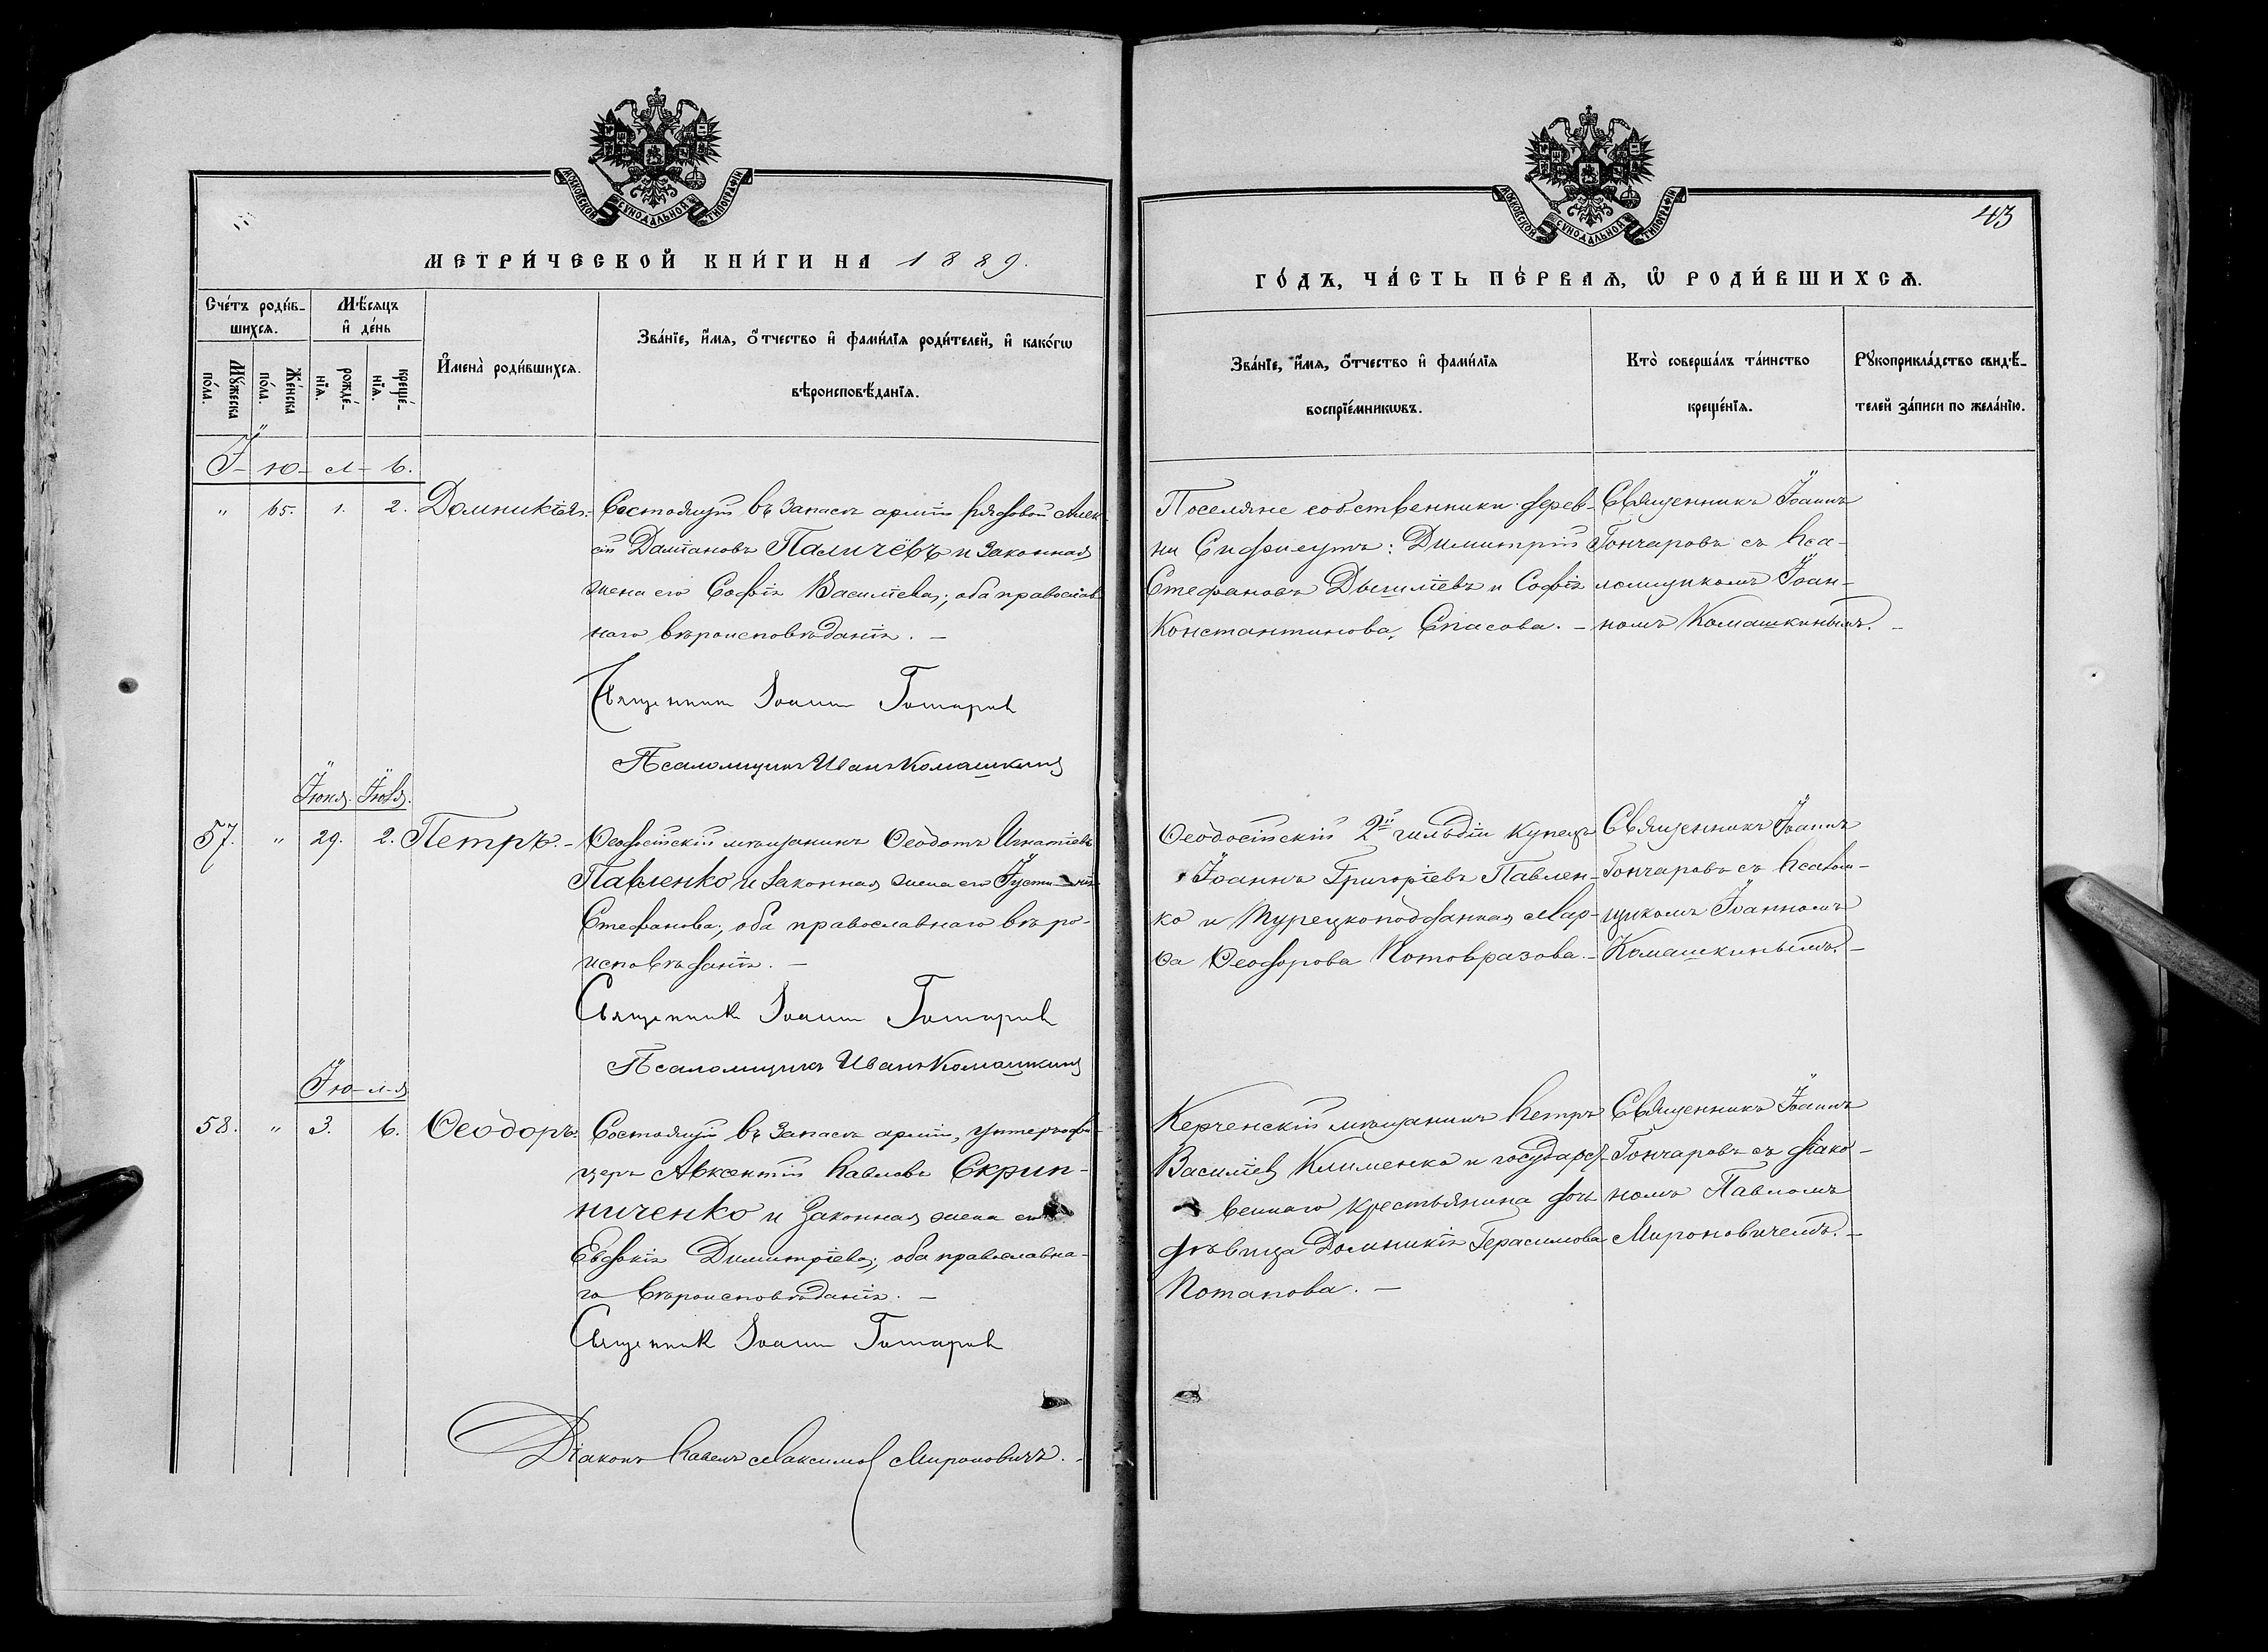 МОСКОВСКОЙ СУНОДАЛЬНОЙ ТИПОГРАФІИ
МЕТРИ́ЧЕСКОЙ КНИ́ГИ НА 1889.
Сче́тъ роди́в-
шихсѧ.
Мѣ́сѧцъ
и҆ де́нь
Мꙋ́жеска
по́ла.
Же́нска
по́ла.
рожде́-
нїѧ.
креще́-
нїѧ.
И҆мена̀ роди́вшихсѧ.
Зва́нїе, и҆́мѧ, ѻ҆́тчество и҆ фами́лїѧ роди́телей, и҆ како́гѡ
вѣроисповѣ́данїѧ.
І-ю-л-ь.
" 65. 1. 2. Домникія.- Состоящій въ запасѣ арміи рядовой Алек-
сій Даміановъ Паличёвъ и законная
жена его Софія Васильева; оба православ-
наго вѣроисповѣданія. —
Священник Іоанн Гончаров
Псаломщикъ Иванъ Комашкинъ
Іюня. Іюля.
57. " 29. 2. Петръ.- Ѳеодосійскій мѣщанинъ Ѳеодотъ Игнатіевъ
Павленко и законная жена его Іусти-нія
Стефанова; оба православнаго вѣро-
исповѣданія. —
Священник Іоанн Гончаров
Псаломщикъ Иванъ Комашкинъ
Ію-л-я
58. " 3. 6. Ѳеодоръ. Состоящій въ запасѣ арміи, унтеръ-офи-
церъ Авксентій Павловъ Скрип-
ниченко и законная жена его
Евдокія Димитріева; оба православна-
го вѣроисповѣданія. —
Священник Іоанн Гончаров
Діаконъ Павелъ Максимов Мироновичъ. -
МОСКОВСКОЙ СУНОДАЛЬНОЙ ТИПОГРАФІИ
43
ГО́ДЪ, ЧА́СТЬ ПЕ́РВАѦ, Ѡ҆ РОДИ́ВШИХСѦ.
Зва́нїе, и҆́мѧ, ѻ҆́тчество и҆ фами́лїѧ
воспрїе́мникѡвъ.
Кто̀ соверша́лъ та́инство
креще́нїѧ.
Рꙋкоприкла́дство свидѣ́-
телей за́писи по жела́нїю.
Поселяне собственники дерев-
ни: Димитрій
Стефановъ и Софія
Константинова Спасова. —
Священникъ Іоаннъ
Гончаровъ съ Пса-
ломщикомъ Іоан-
номъ Комашкинымъ. -
Ѳеодосійскій 2й гильдіи купецъ
Іоаннъ Григоріевъ Павлен-
ко и Турецкоподданная Мар-
ѳа Ѳеодорова.-
Священникъ Іоаннъ
Гончаровъ съ Псалом-
щикомъ Іоанномъ
Комашкинымъ. -
Керченскій мѣщанинъ Петръ
Василіев Клименко и государст-
веннаго крестьянина дочь
дѣвица Домникія Герасимова
Потапова. —
Священникъ Іоаннъ
Гончаровъ съ діако-
номъ Павломъ
Мироновичемъ. -